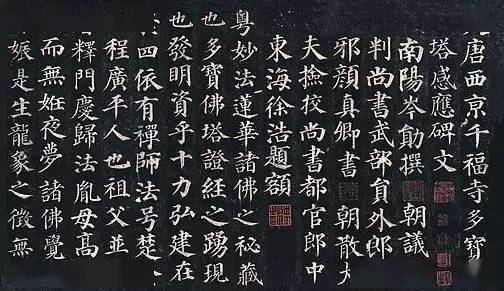 唐西京千福寺多寶
塔感應碑文
南陽岑勛撰 朝議
判尚書武部員外郎
邪顏真卿書 朝散大
夫撿挍尚書都官郎中
東海徐浩題額
粵妙法蓮華諸佛之秘藏
也多寶佛塔證經之踴現
也發明資乎十力弘建在
四依有禪師法号楚
程廣平人也祖父並
釋門慶歸法胤母高
而無妊夜夢諸佛覺
娠是生龍象之徵無